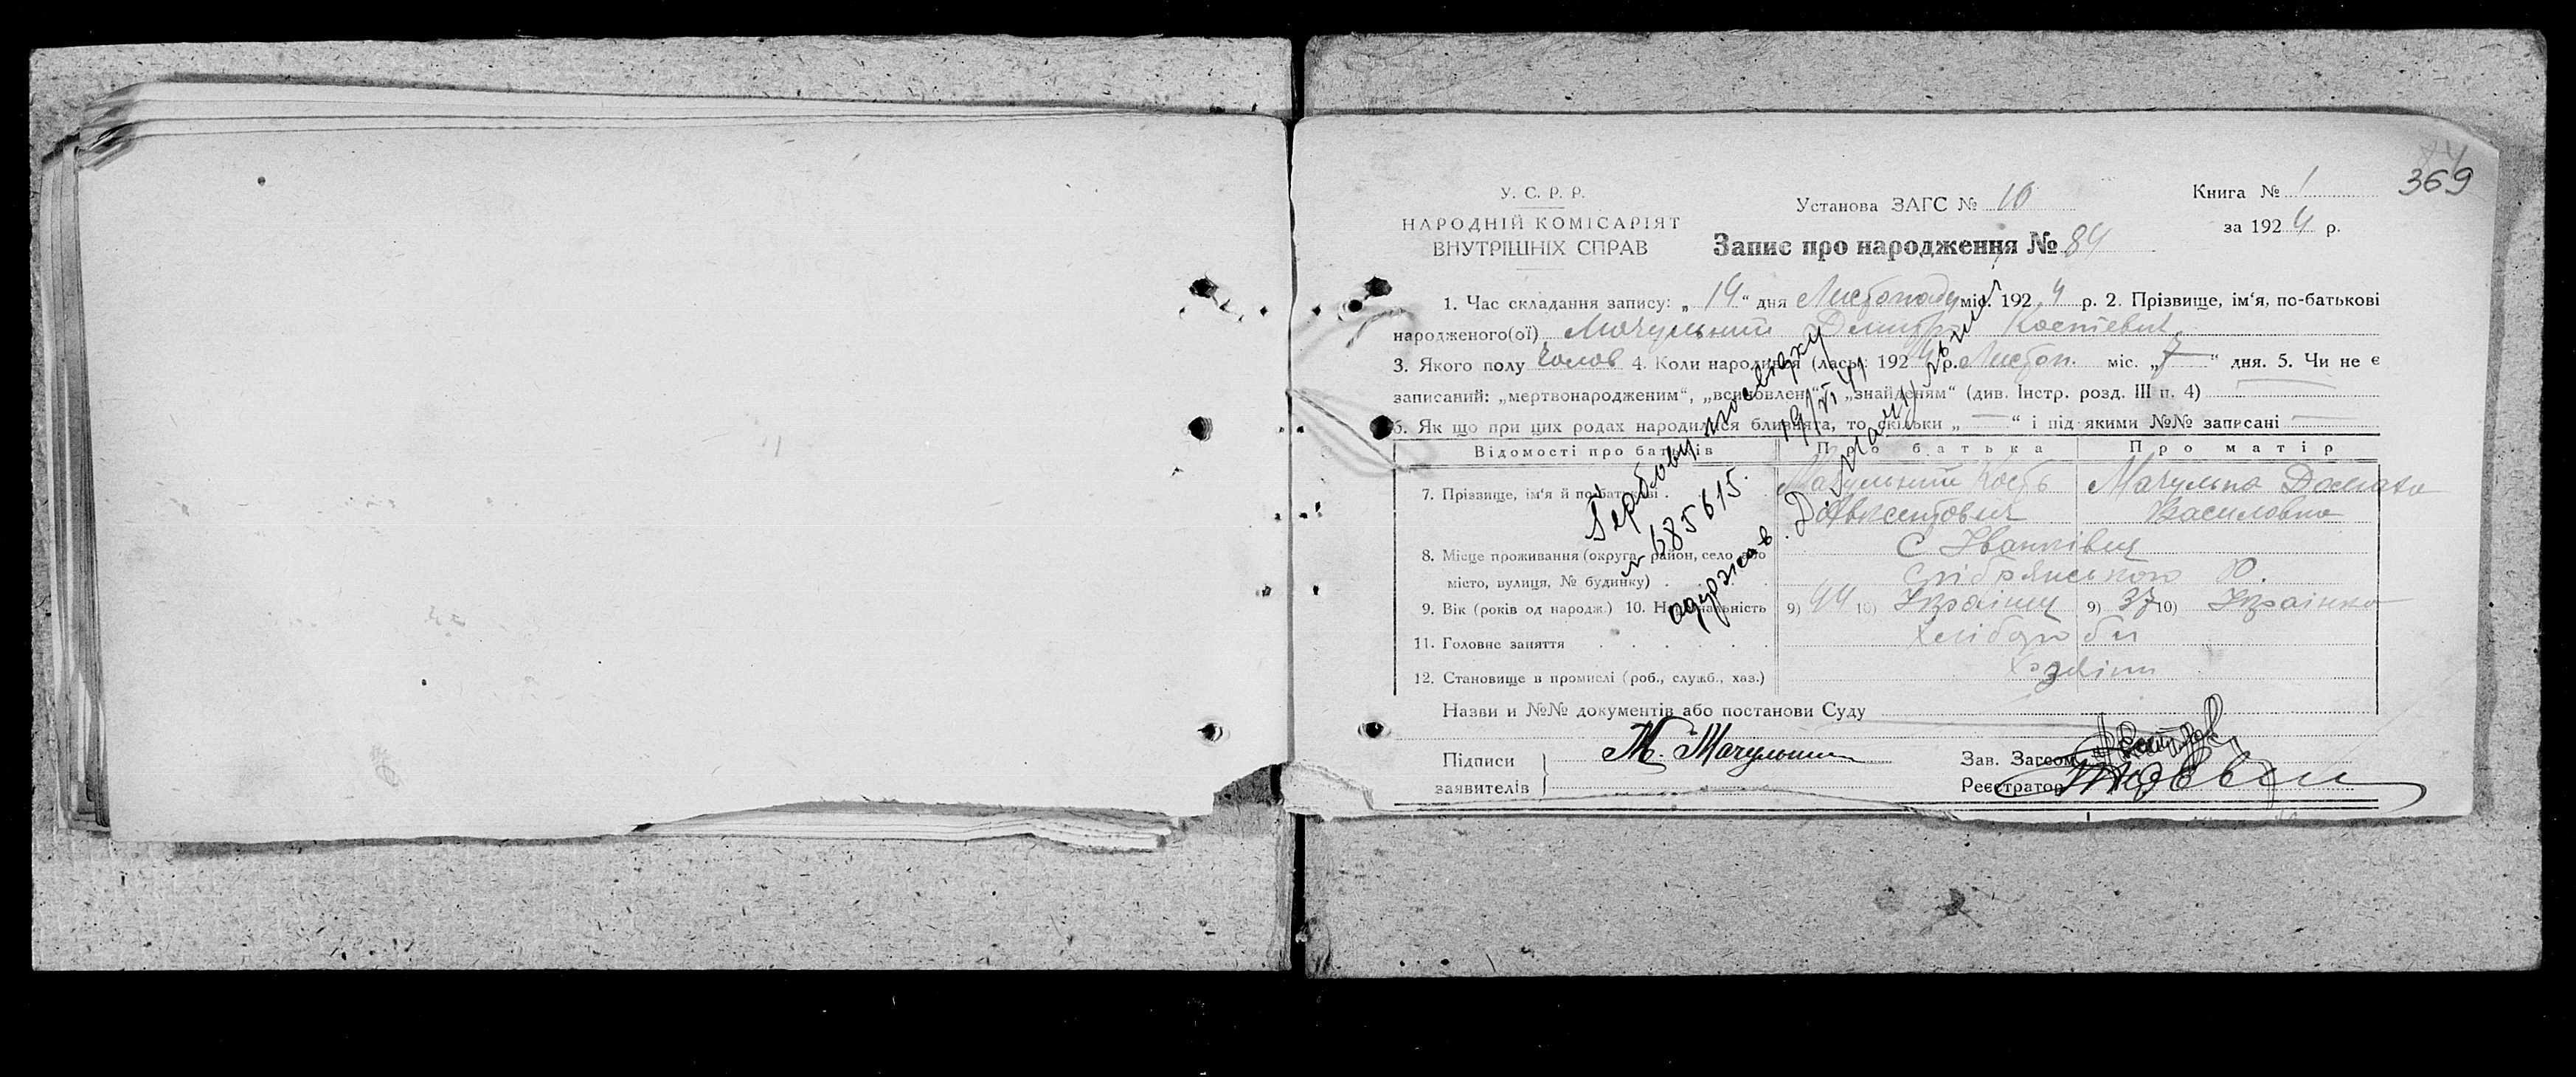 84
369
У. С. Р. Р.
НАРОДНІЙ КОМІСАРІЯТ
ВНУТРІШНІХ СПРАВ
Установа ЗАГС № 10
Книга № 1
за 1924 р.
Запис про народження № 84
1. Час складання запису: „ 14 “ дня Листопаду міс. 1924 р. 2. Прізвище, ім‘я, по-батькові
народженого(ої) Мачульний Дмитро Костевич
3. Якого полу Чолов 4. Коли народився (лась): 1924 р. Листоп. міс. „ 7 “ дня. 5. Чи не є
записаний: „мертвонародженим“, „всиновлен “ „знайденям“ (див. Інстр. розд. III п. 4)
6. Як що при цих родах народилися близнята, то скільки „ — “ і під якими №№ записані —
Відомості про батьків Про батька Про матір
7. Прізвище, ім‘я й по-батькові . Мачульний Кость Мачульна
Авксентович Василовна
8. Місце проживання (округа, район, село або С Іванківці
місто, вулиця, № будинку) . Срібрянського Р.
9. Вік (років од народж.) 10. Національність 9) 44 10) Українець 9) 37 10) Українка
11. Головне заняття . . . . . Хлібороби
12. Становище в промислі (роб., служб., хаз.) Хазяїни
Назви и №№ документів або постанови Суду
Підписи М. Мачульний
заявителів
Зав. Загсом
Реєстратор
Гербову
19/VI 41
№ 685615.
одержав.